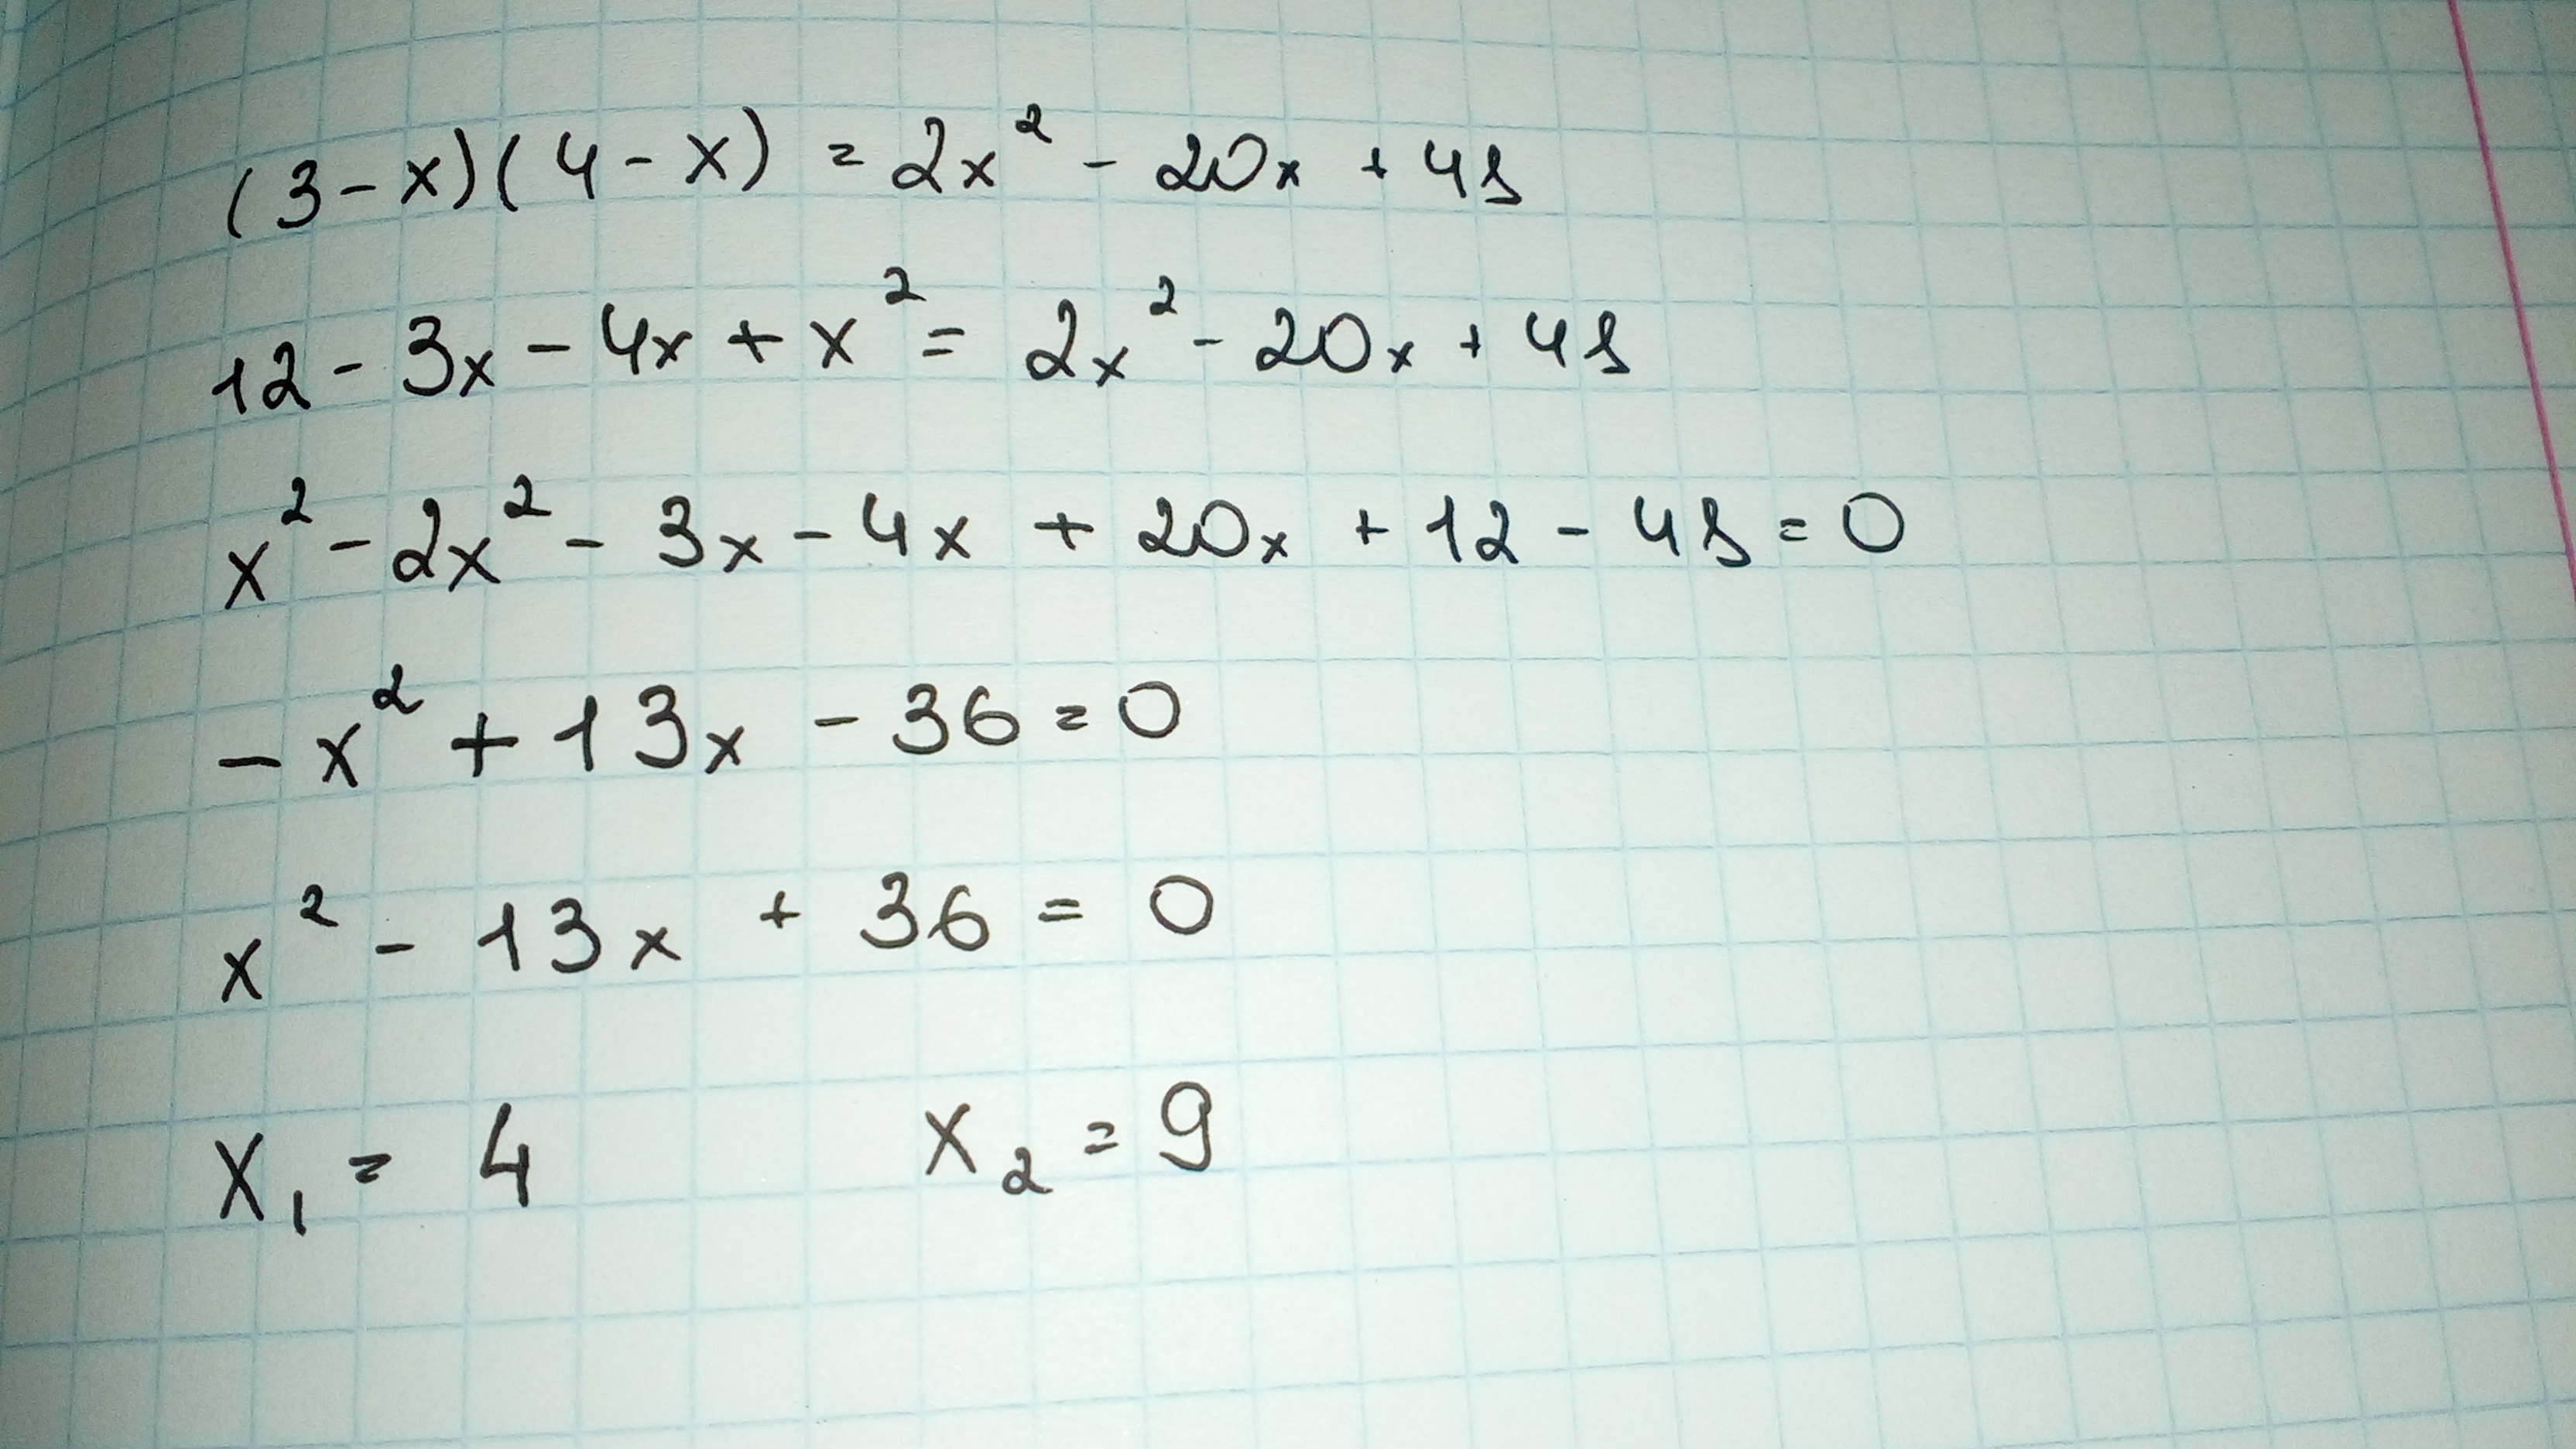 (3-x)(4-x) = 2x² - 20x + 48
12 - 3x - 4x + x² = 2x² - 20x + 48
x² - 2x² - 3x - 4x + 20x + 12 - 48 = 0
-x² + 13x - 36 = 0
x² - 13x + 36 = 0
x₁ = 4 x₂ = 9